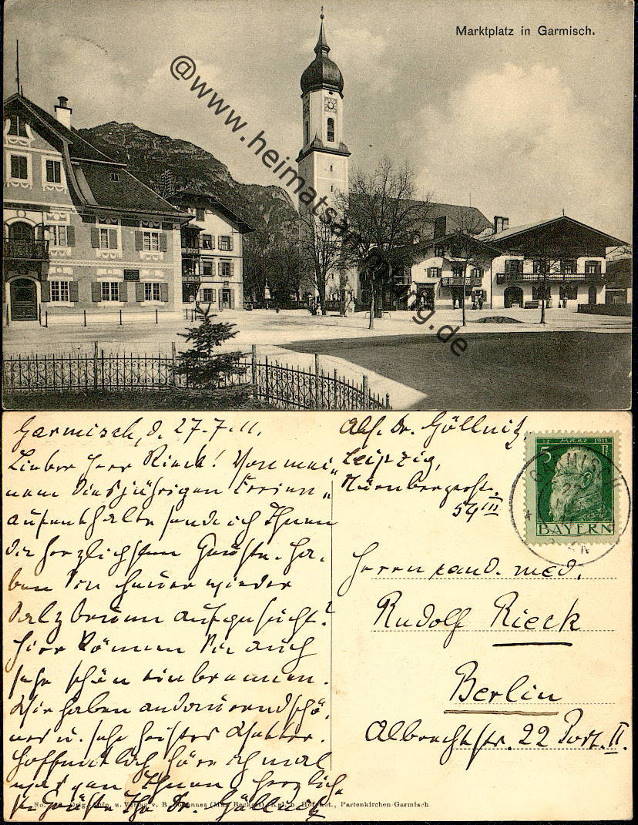 Marktplatz in Garmisch.
@www.heimatsammlung.de
Garmisch, d. 27.7.11.
Lieber Herr Rieck! Von mei-
nem diesjährigen Ferien-
aufenthalte sende ich Ihnen
die herzlichsten Grüße. Ha-
ben Sie heuer wieder
Salzbrunn aufgesucht?
Hier können Sie auch
sehr schön einbrennen.
Wir haben andauernd schö-
nes u. sehr heißes Wetter.
Hoffentlich höre ich mal
was von Ihnen. Herzlich
grüßt Ihr Dr. Göllnitz
Abs. Dr. Göllnitz
Leipzig,
Nürnbergerstr.
54 III
5 1911 5 Pf
BAYERN
Herrn cand. med.
Rudolf Rieck
Berlin
Albrechtstr. 22 Port. II.
Partenkirchen-Garmisch